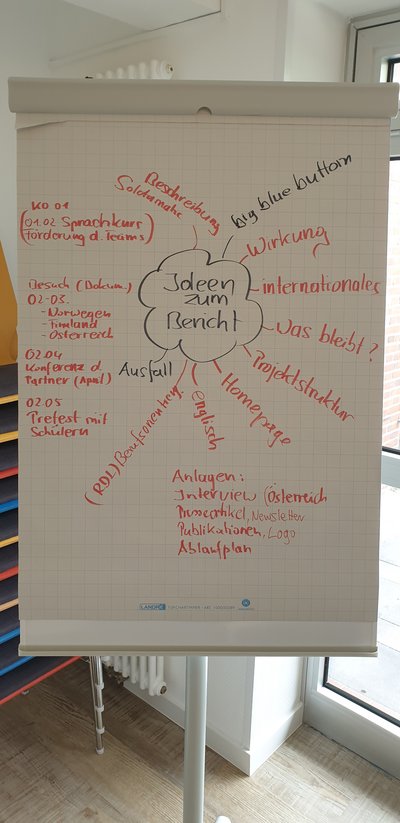 Ideen
zum
Bericht
big blue button
Wirkung
internationales
Was bleibt?
Projektstruktur
Homepage
englisch
(RDZ) Berufsorientierung
Ausfall
Beschreibung
KO 01
(01.02 Sprachkurs
Förderung d. Teams)
Besuch (Dokum.)
02-03.
- Norwegen
- Finnland
- Österreich
02.04
Konferenz d.
Partner (April)
02.05
Pretest mit
Schülern
Anlagen:
Interview (Österreich
Presseartikel, Newsletter
Publikationen, Logo
Ablaufplan
LANDRÉ